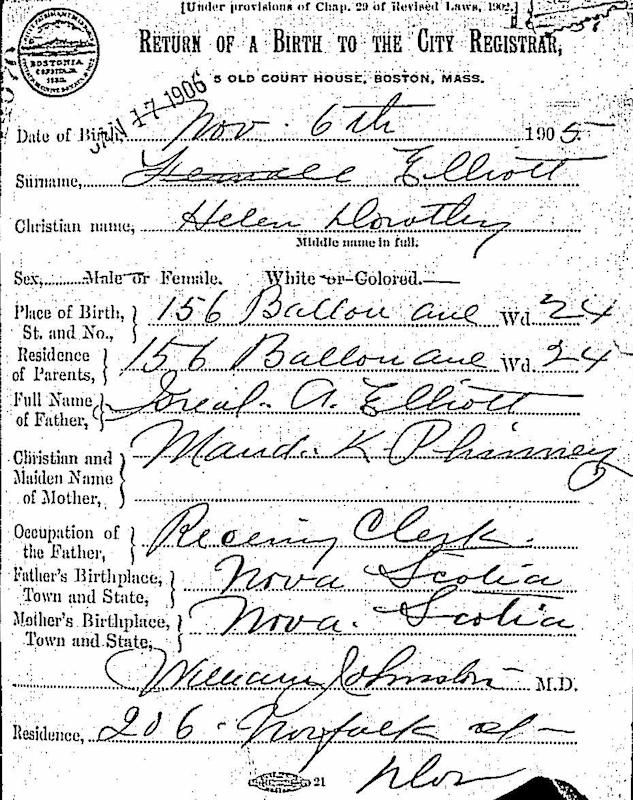 [Under provisions of Chap. 29 of Revised Laws, 1902.]
RETURN OF A BIRTH TO THE CITY REGISTRAR,
5 OLD COURT HOUSE, BOSTON, MASS.
BOSTONIA
JAN 17 1906
Date of Birth, Nov. 6th 1905
Surname, Elliott
Christian name, Helen Dorothy
Middle name in full.
Sex, Male or Female. White or Colored.
Place of Birth, St. and No., 156 Ballou ave Wd. 24
Residence of Parents, 156 Ballou ave Wd. 24
Full Name of Father, A. Elliott
Christian and Maiden Name of Mother, Maud. K Phinney
Occupation of the Father, Clerk.
Father's Birthplace, Town and State, Nova Scotia
Mother's Birthplace, Town and State, Nova. Scotia
William Johnston M.D.
Residence, 206. Norfolk st
21